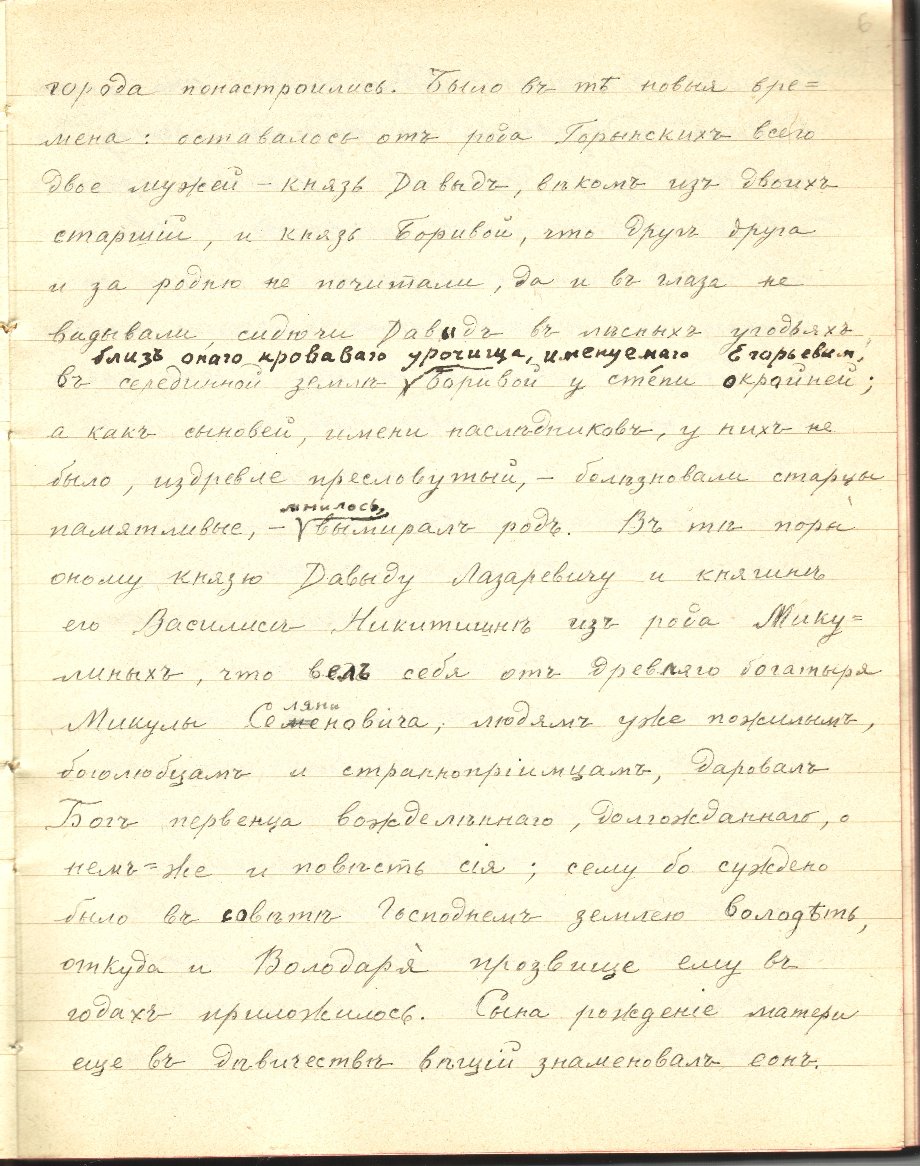 6
города понастроились. Было въ тѣ новыя вре=
мена: оставалось отъ рода Горынскихъ всего
двое мужей – князь Давыдъ, вѣкомъ изъ двоихъ
старшій, и князь Боривой, что другъ друга
и за родню не почитали, да и въ глаза не
видывали, сидючи Давыдъ въ лѣсныхъ угодьяхъ
близъ онаго кроваваго урочища, именуемаго Егорьевым,
въ серединной землѣ Боривой у степи окрайней;
а какъ сыновей, имени наслѣдниковъ, у нихъ не
было, издревле пресловутый, – болѣзновали старцы
мнилось,
памятливые, – вымиралъ родъ. Въ тѣ поры
оному князю Давыду Лазаревичу и княгинѣ
его Василисѣ Никитишнѣ изъ рода Мику=
линыхъ, что велъ себя отъ древняго богатыря
ляни
Микулы Семеновича, людямъ уже пожилымъ,
боголюбцамъ и страннопріимцамъ, даровалъ
Богъ первенца вожделѣннаго, долгожданнаго, о
немъ=же и повѣсть сія; сему бо суждено
было въ совѣтѣ Господнемъ землею володѣть,
откуда и Володаря прозвище ему въ
годахъ приложилось. Сына рожденіе матери
еще въ дѣвичествѣ вѣщій знаменовалъ сонъ.